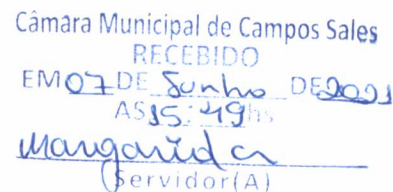 Câmara Municipal de Campos Sales
RECEBIDO
EM 07 DE Junho DE 2021
AS 15:49 hs
Margarida
Servidor(A)